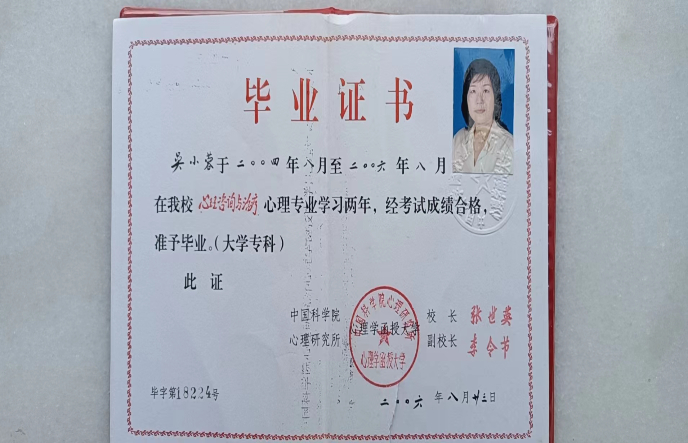 毕业证书
吴小蓉于二〇〇四年八月至二〇〇六年八月
在我校心理咨询与治疗心理专业学习两年，经考试成绩合格，
准予毕业。（大学专科）
此证
中国科学院 校长 张世英
心理研究所 心理学函授大学 副校长 李令节
中国科学院心理研究所
心理学函授大学
毕字第18224号
二〇〇六年八月廿三日